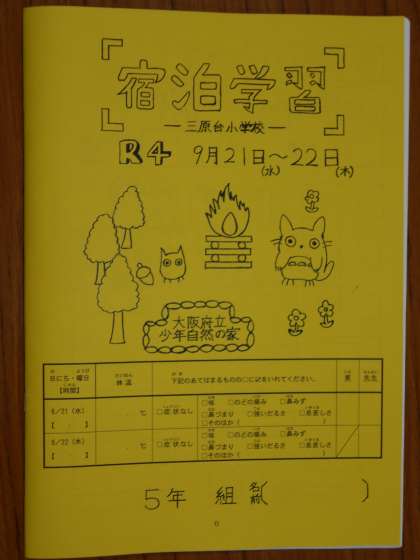 宿泊学習
ー三原台小学校ー
R4 9月21日～22日
(水) (木)
大阪府立
少年自然の家
日にち・曜日 体温 下記のあてはまるものの□に記をいれてください。 家 先生
【時間】
9/21（水） . ℃ □症状なし □咳 □のどの痛み □鼻みず
【 : 】 □鼻づまり □強いだるさ □息苦しさ
□そのほか（ ）
9/22（木） . ℃ □症状なし □咳 □のどの痛み □鼻みず
【 : 】 □鼻づまり □強いだるさ □息苦しさ
□そのほか（ ）
5年 組 名前( )